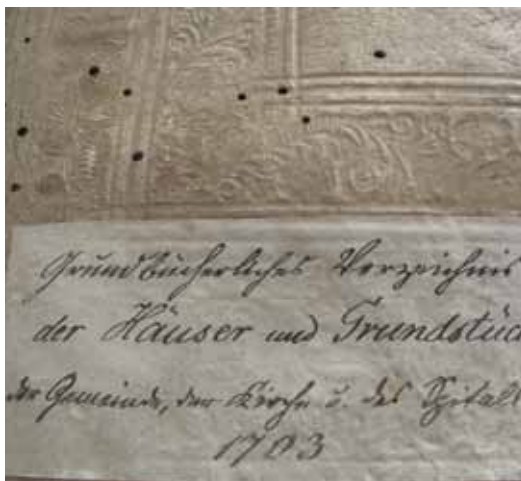 Grundbücherliches Verzeichnis
der Häuser und Grundstüc
der Gemeinde, der Kirche u. des Spitals
1703